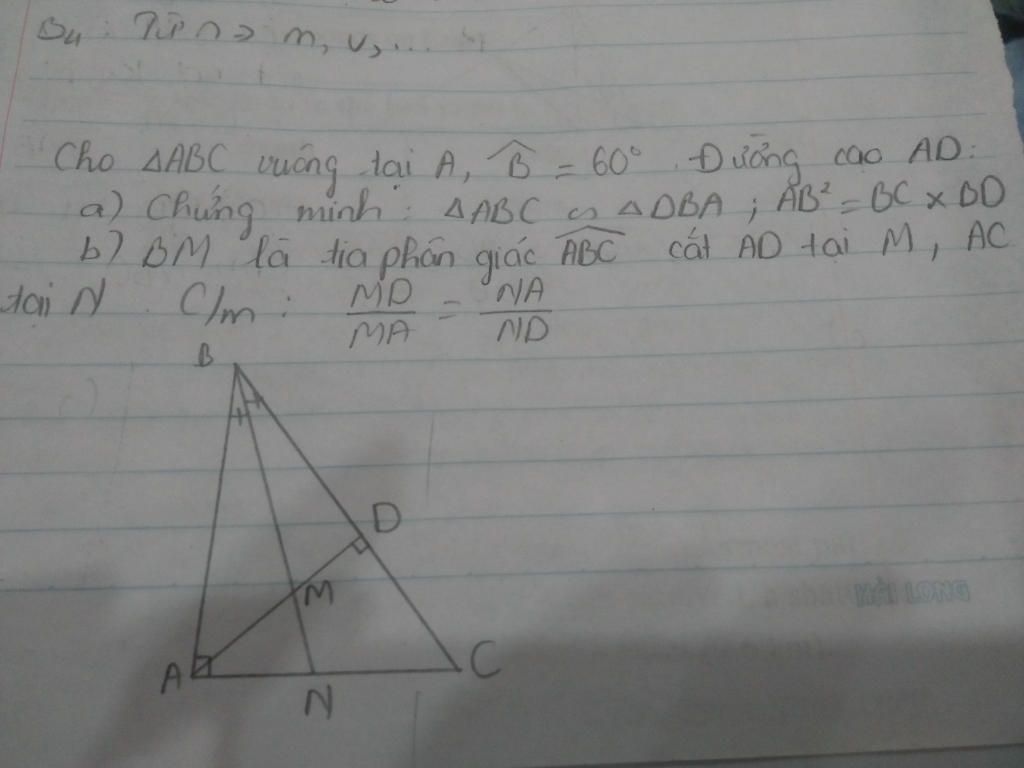 B4 : Từ n => m, v, ...
Cho △ABC vuông tại A, B̂ = 60° . Đường cao AD:
a) Chứng minh : △ABC ∽ △DBA ; AB² = BC × BD
b) BM là tia phân giác ABC cắt AD tại M, AC
tại N . C/m : MD/MA = NA/ND
B
D
M
A
C
N